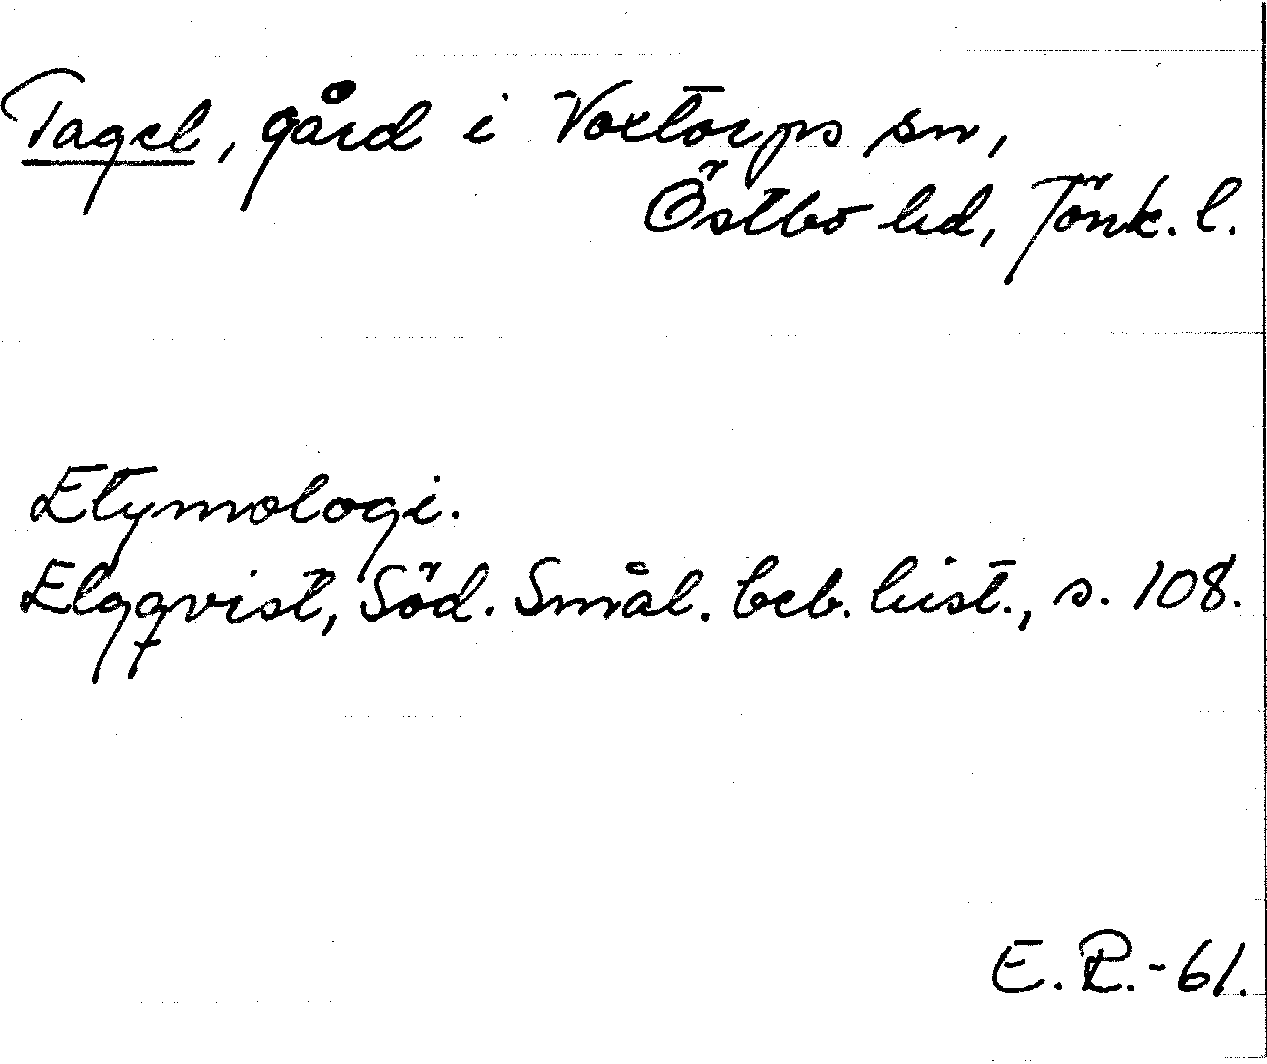 Tagel, gård i Voxtorps sn,
Östbo hd, Jönk. l.
Etymologi.
Elgqvist, Söd. Smål. beb. hist., s. 108.
E. P. -61.